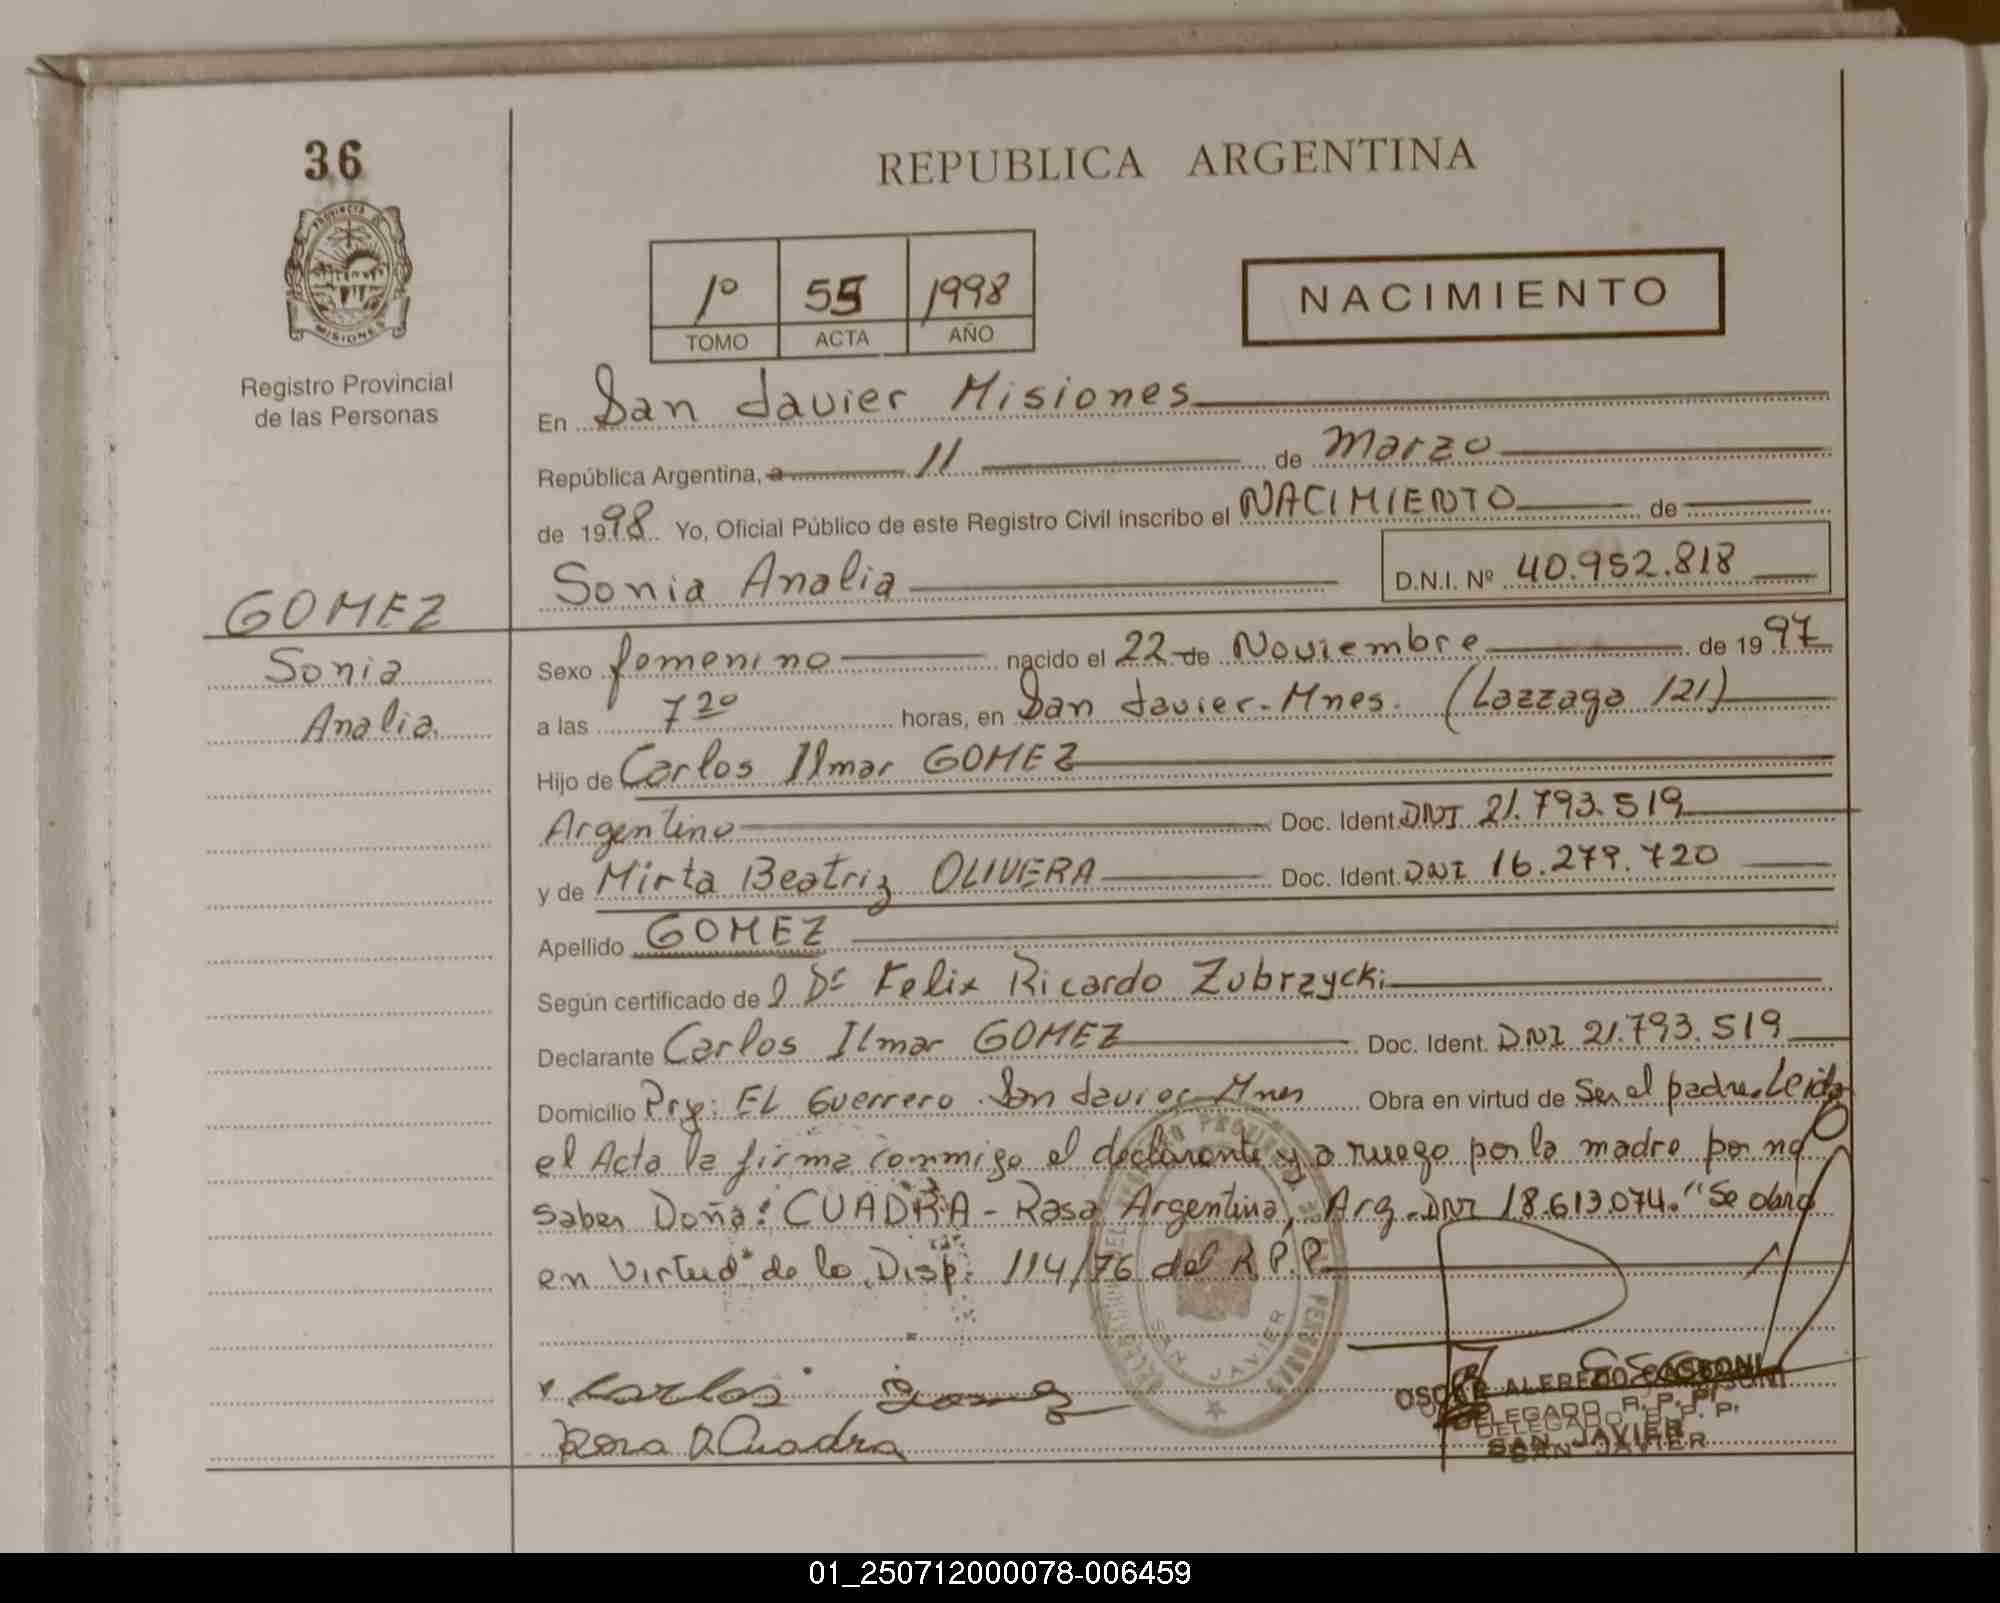 36
PROVINCIA DE
MISIONES
Registro Provincial
de las Personas
GOMEZ
Sonia
Analia.
REPUBLICA ARGENTINA
1º 55 1998
TOMO ACTA AÑO
NACIMIENTO
En San Javier Misiones
República Argentina, a 11 de Marzo
de 1998 Yo, Oficial Público de este Registro Civil inscribo el NACIMIENTO de
Sonia Analia D.N.I. Nº 40.952.818
Sexo femenino nacido el 22 de Noviembre de 1997
a las 7 20 horas, en San Javier-Mnes. (Lazzaga 121)
Hijo de Carlos Ilmar GOMEZ
Argentino Doc. Ident. DNI 21.793.519
y de Mirta Beatriz OLIVERA Doc. Ident. DNI 16.279.720
Apellido GOMEZ
Según certificado de l Dr Felix Ricardo Zubrzycki
Declarante Carlos Ilmar GOMEZ Doc. Ident. DNI 21.793.519
Domicilio Prje: EL Guerrero San Javier-Mnes Obra en virtud de Ser el padre. Leida
el Acta la firma conmigo el declarante y a ruego por la madre por no
saber Doña: CUADRA - Rosa Argentina, Arg. DNI 18.613.074. "Se obró
en Virtud" de la Disp. 114/76 del R.P.P.
SAN JAVIER
Carlos Gomez
Rosa A. Cuadra
OSCAR ALFREDO CASBONI
DELEGADO R. P. P.
SAN JAVIER
01_250712000078-006459